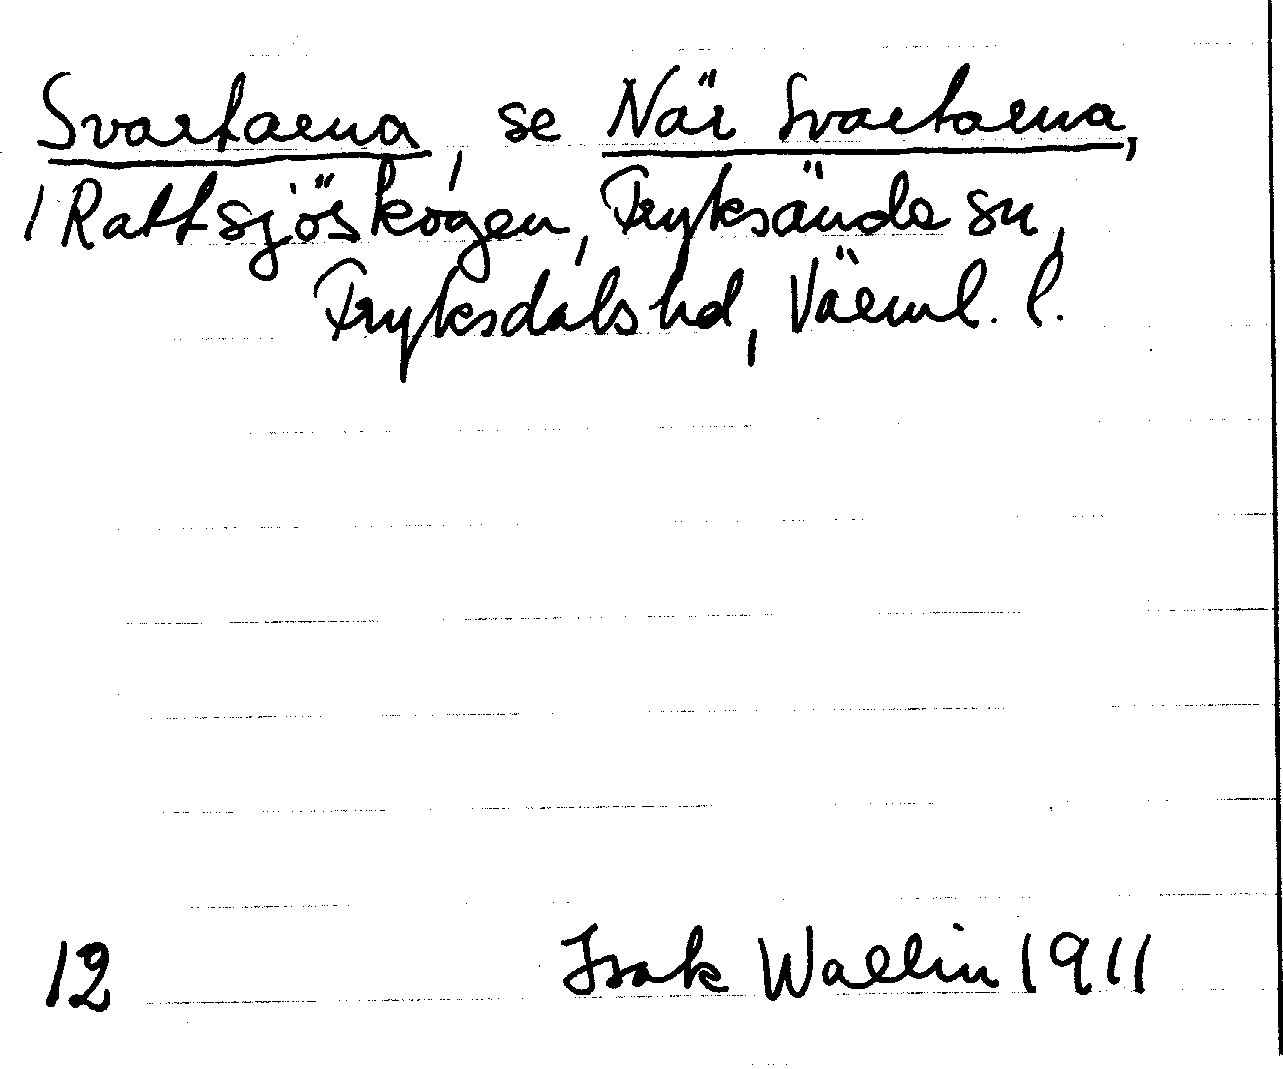 Svartarna, se När Svartarna,
i Rattsjöskogen, Fryksände sn,
Fryksdals hd, Värml. l.
12 Isak Wallin 1911